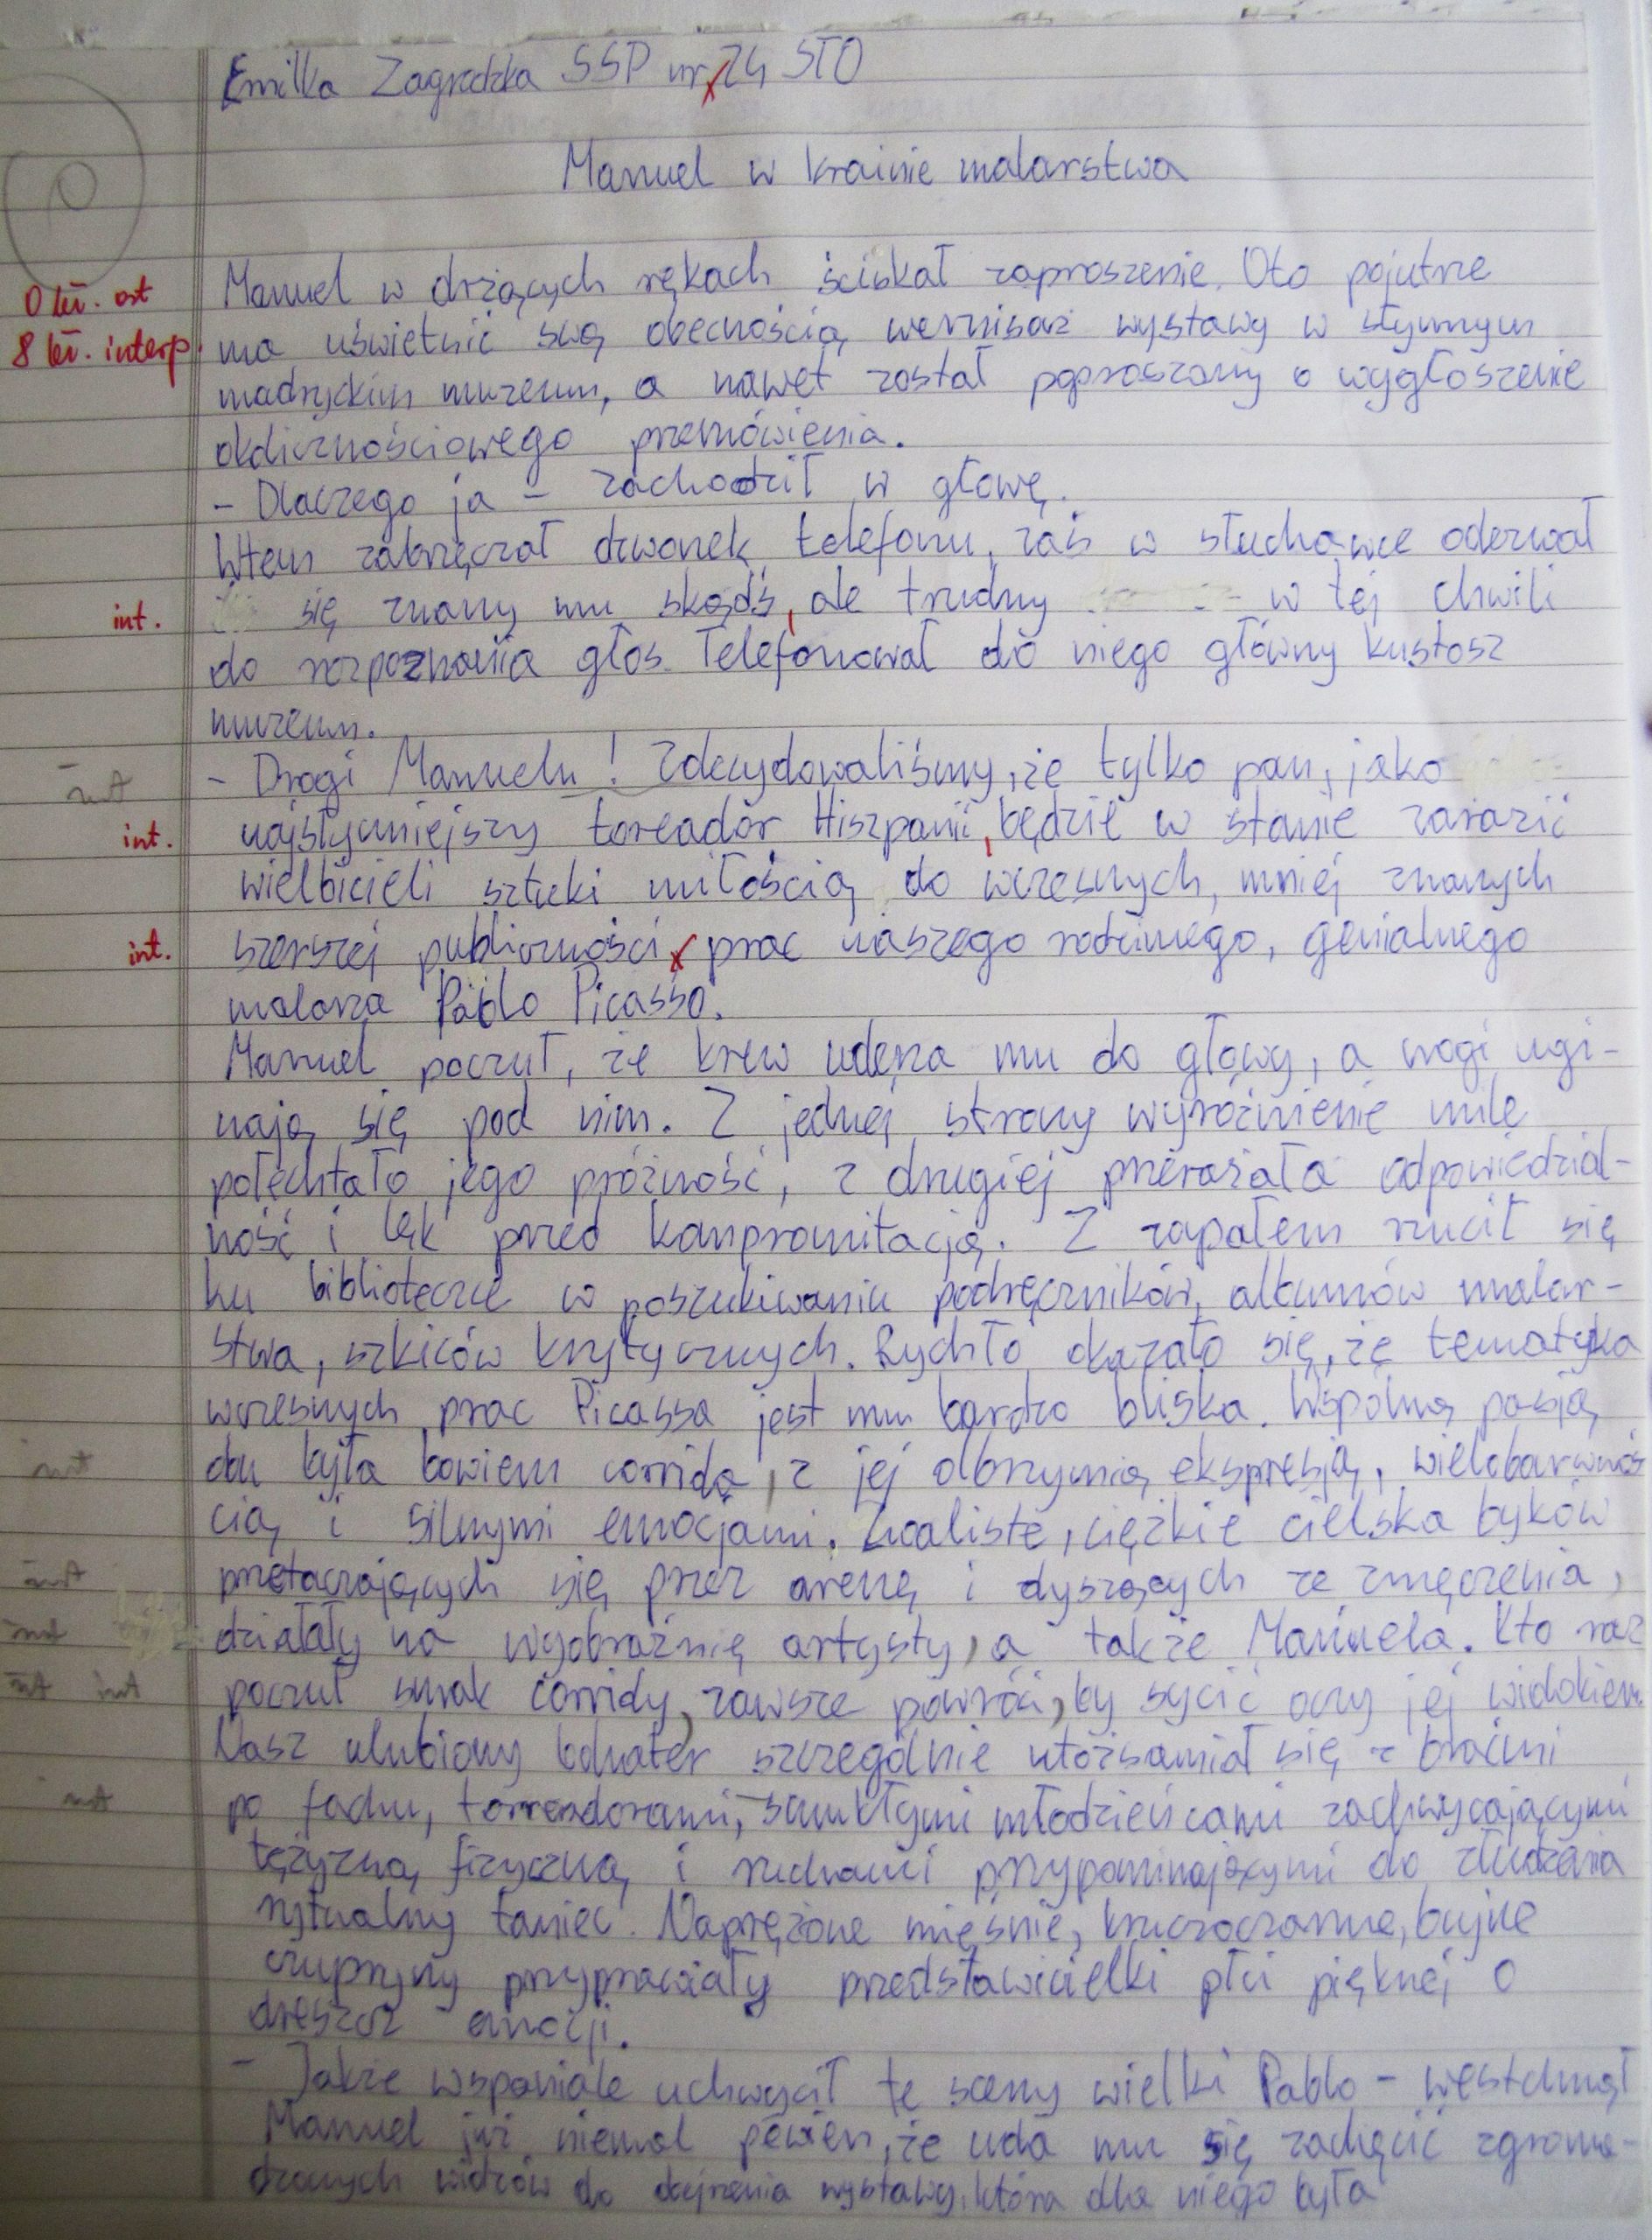 Emilka Zagrodzka SSP nr 24 STO
Manuel w krainie malarstwa
Manuel w drżących rękach ściskał zaproszenie. Oto pojutrze
0 bł. ort
ma uświetnić swą obecnością wernisaż wystawy w słynnym
8 bł. interp.
madryckim muzeum, a nawet został poproszony o wygłoszenie
okolicznościowego przemówienia.
- Dlaczego ja - zachodził w głowę.
Wtem zabrzęczał dzwonek telefonu, zaś w słuchawce oderwał
int. się znany mu skądś, ale trudny w tej chwili
do rozpoznania głos. Telefonował do niego główny kustosz
muzeum.
int - Drogi Manuelu! Zdecydowaliśmy, że tylko pan, jako
int. najsłynniejszy toreador Hiszpanii, będzie w stanie zarazić
wielbicieli sztuki miłością do wczesnych, mniej znanych
int. szerszej publiczności prac naszego rodzimego, genialnego
malarza Pablo Picasso.
Manuel poczuł, że krew uderza mu do głowy, a nogi ugi-
nają się pod nim. Z jednej strony wyróżnienie mile
połechtało jego próżność, z drugiej przerażała odpowiedzial-
ność i lęk przed kompromitacją. Z zapałem rzucił się
ku biblioteczce w poszukiwaniu podręczników, albumów malar-
stwa, szkiców krytycznych. Rychło okazało się, że tematyka
wczesnych prac Picassa jest mu bardzo bliska. Wspólną pasją
int obu była bowiem corrida, z jej olbrzymią ekspresją, wielobarwnoś
cią i silnymi emocjami. Zwaliste, ciężkie cielska byków
int przetaczających się przez arenę i dyszących ze zmęczenia,
int działały na wyobraźnię artysty, a także Manuela. Kto raz
int int poczuł smak corridy, zawsze powróci, by sycić oczy jej widokiem.
Nasz ulubiony bohater szczególnie utożsamiał się z braćmi
int po fachu, torreadorami, smukłymi młodzieńcami zachwycającymi
tężyzną fizyczną i ruchami przypominającymi do złudzenia
rytualny taniec. Naprężone mięśnie, kruczoczarne, bujne
czupryny przyprawiały przedstawicielki płci pięknej o
dreszcz emocji.
- Jakże wspaniale uchwycił te sceny wielki Pablo - westchnął
Manuel już niemal pewien, że uda mu się zachęcić zgroma-
dzonych widzów do obejrzenia wystawy, która dla niego była